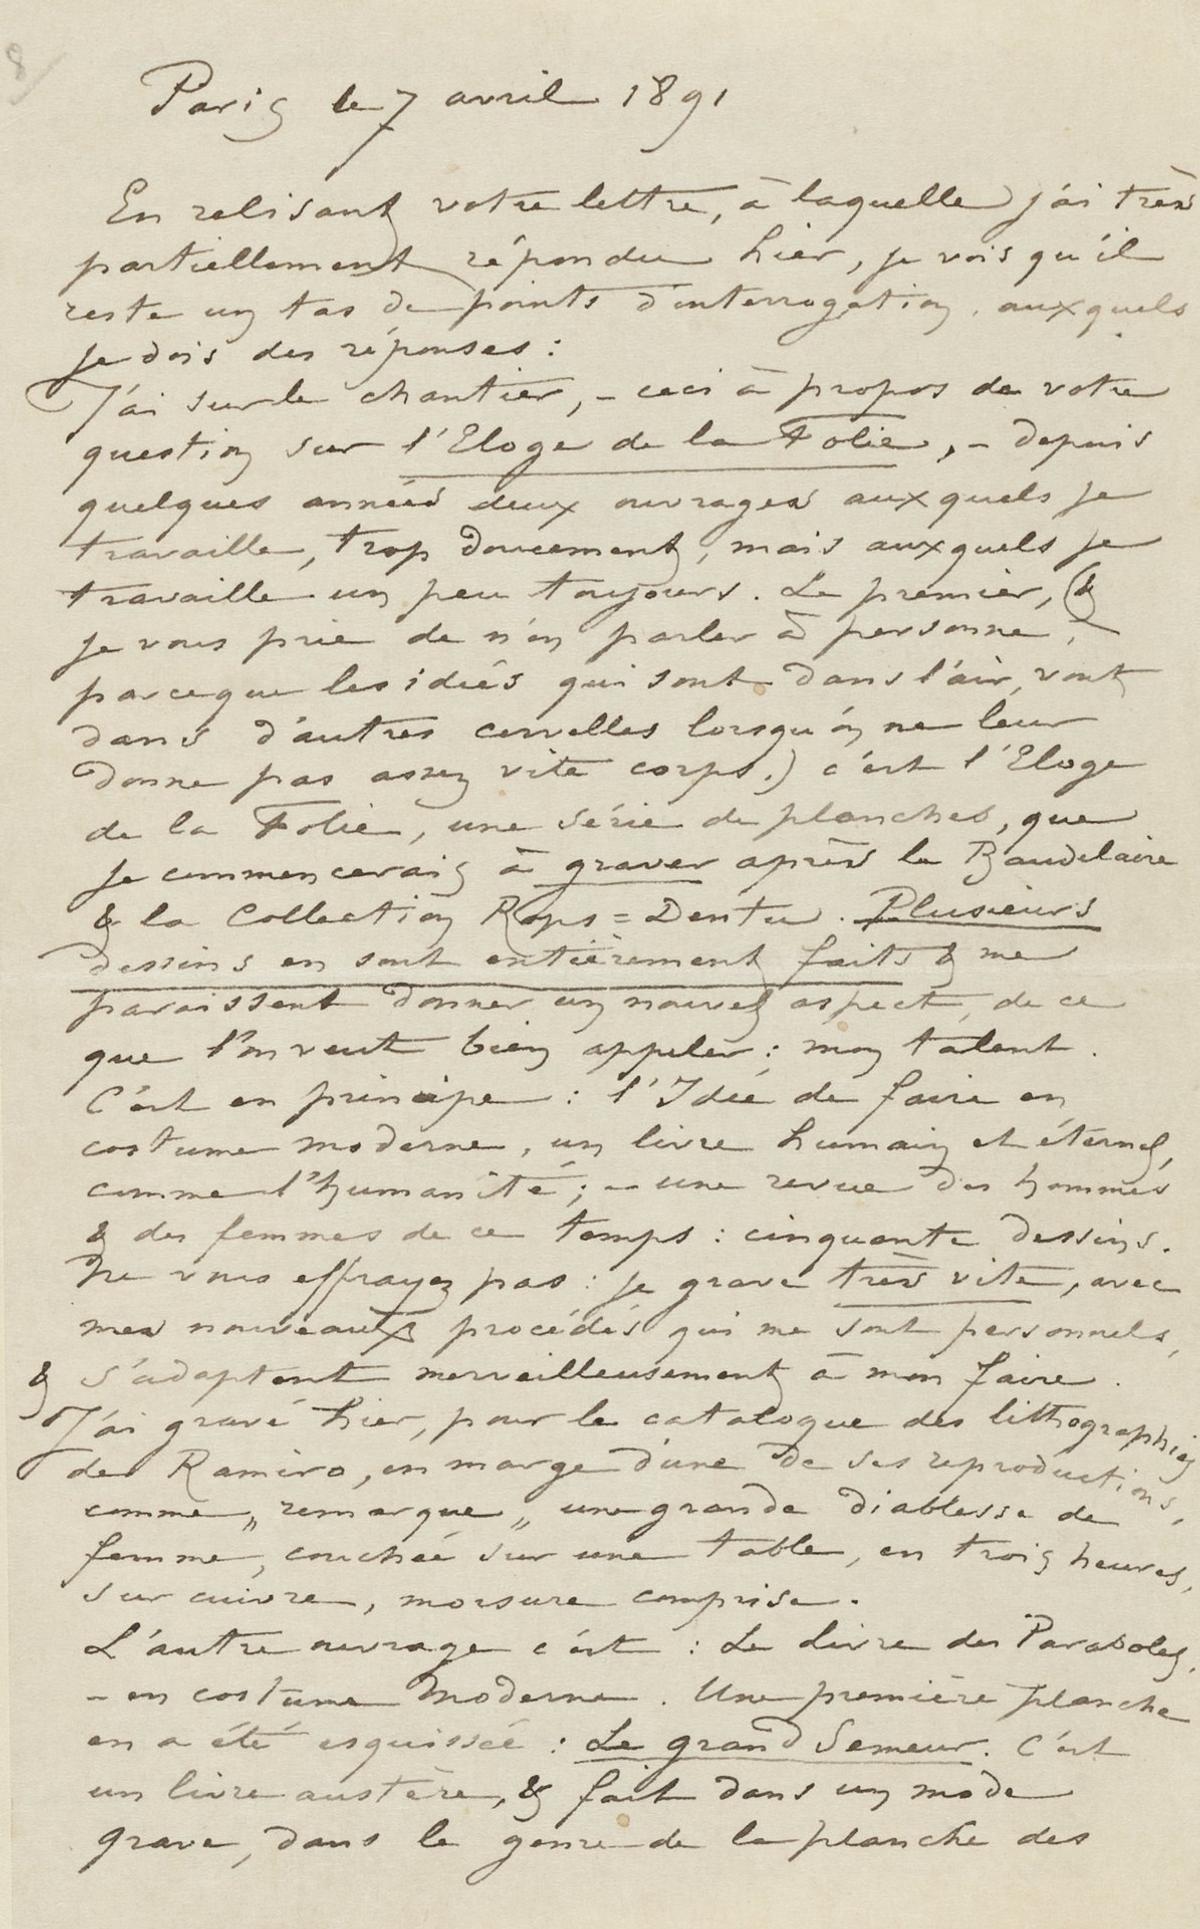 8/
Paris le 7 avril 1891
En relisant votre lettre, à laquelle j'ai très
partiellement répondu hier, je vois qu'il
reste un tas de points d'interrogation, auxquels
je dois des réponses :
J'ai sur le chantier, – ceci à propos de votre
question sur l'Eloge de la Folie, – depuis
quelques années deux ouvrages auxquels je
travaille, trop doucement, mais auxquels je
travaille un peu toujours. Le premier, (&
je vous prie de n'en parler à personne,
parceque les idées qui sont dans l'air, vont
dans d'autres cervelles lorsqu'on ne leur
donne pas assez vite corps.) c'est l'Eloge
de la Folie, une série de planches, que
je commencerais à graver après le Baudelaire
& la Collection Rops=Dentu. Plusieurs
dessins en sont entièrement faits & me
paraissent donner un nouvel aspect, de ce
que l'on veut bien appeler : mon talent.
C'est en principe : l'Idée de faire en
costume moderne, un livre humain et éternel,
comme l'humanité ; – une revue des hommes
& des femmes de ce temps : cinquante dessins.
Ne vous effrayez pas : je grave très vite, avec
mes nouveaux procédés qui me sont personnels,
& s'adaptent merveilleusement à mon faire.
J'ai gravé hier, pour le catalogue des lithographies
de Ramiro, en marge d'une de ses reproductions,
comme „remarque„ une grande diablesse de
femme, couchée sur une table, en trois heures,
sur cuivre, morsure comprise.
L'autre ouvrage c'est : Le Livre des Paraboles,
– en costume moderne. Une première planche
en a été esquissée : Le grand Semeur. C'est
un livre austère, & fait dans un mode
grave, dans le genre de la planche des